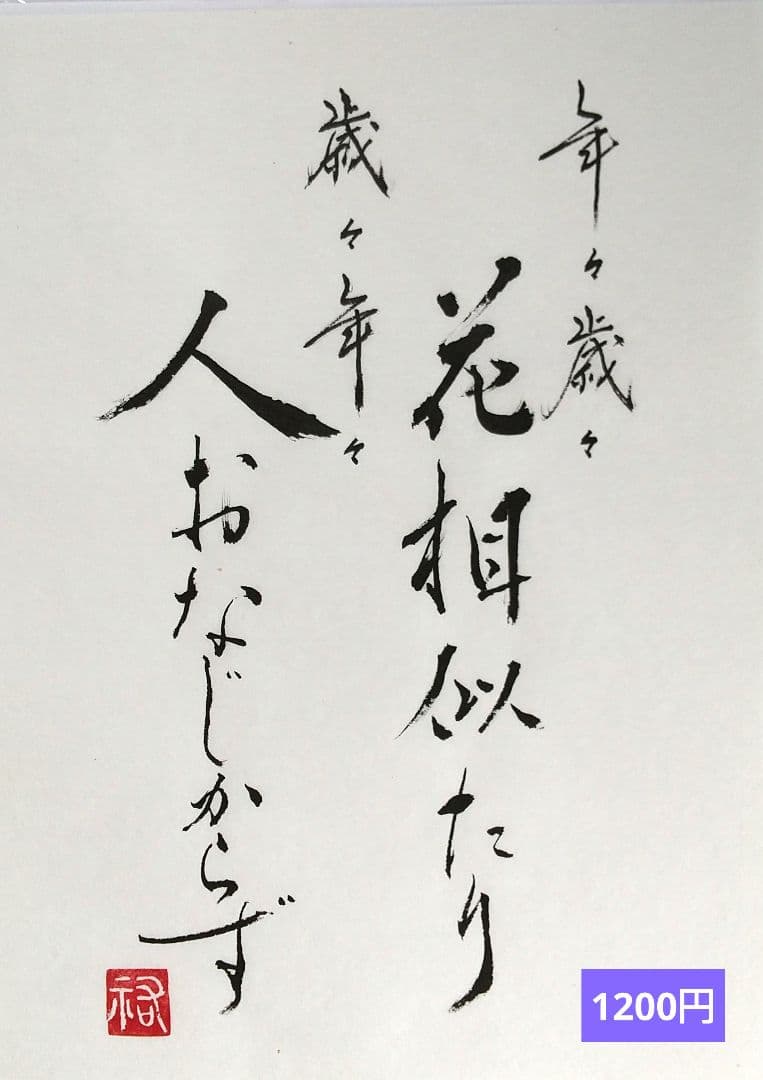 年々歳々
花相似たり
歳々年々
人おなじからず
1200円